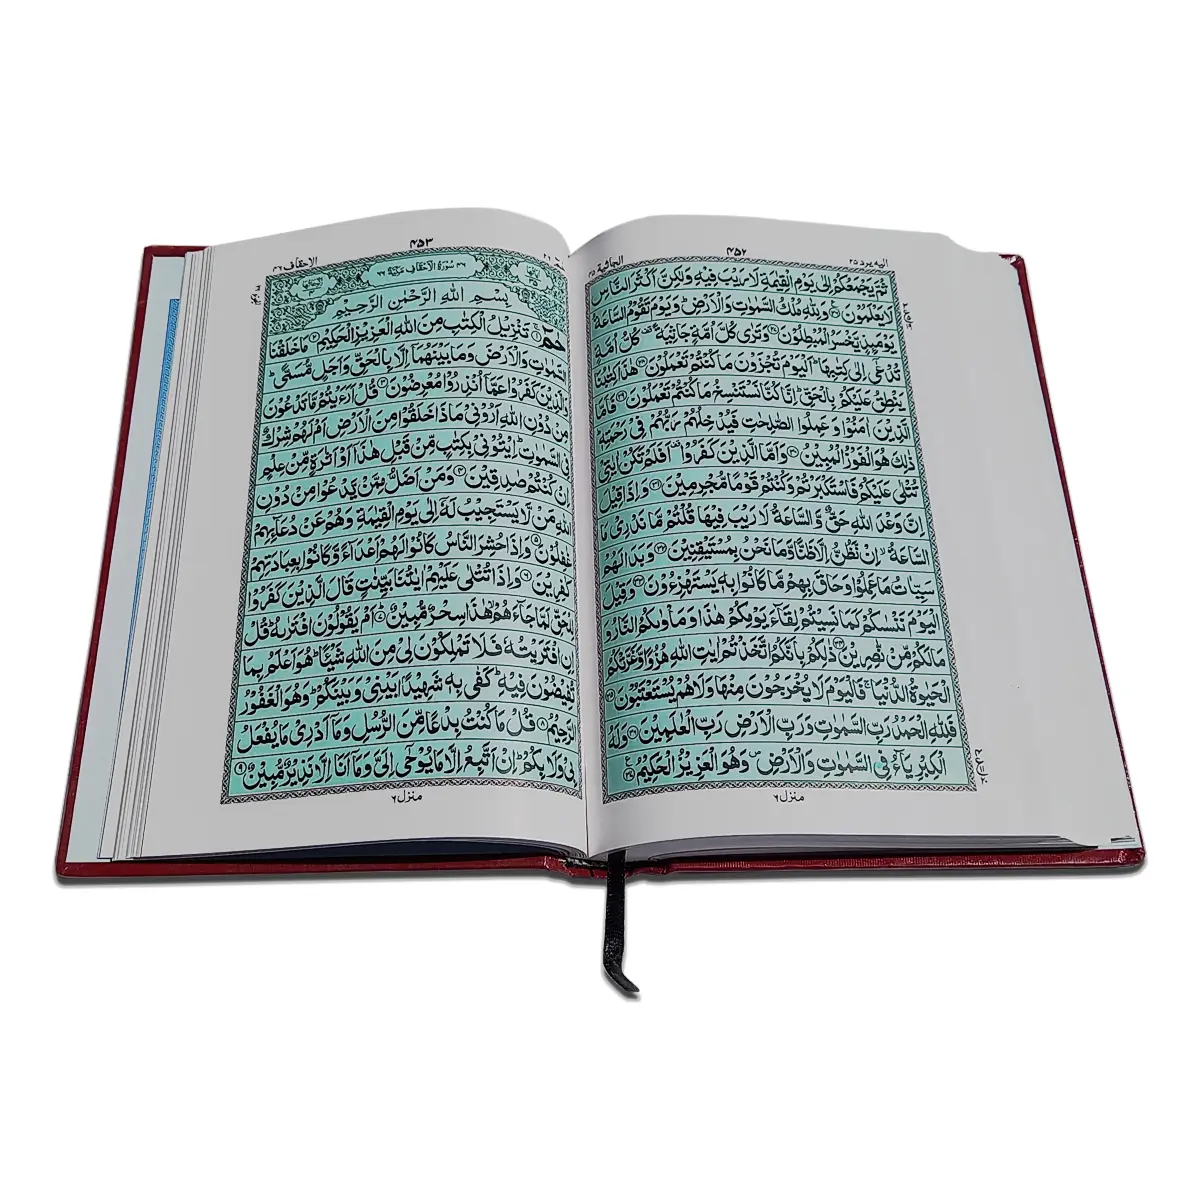 ۴۵۲
الیه یرد ۲۵
الجاثیة ۴۵
ثُمَّ يَجْمَعُكُمْ اِلٰى يَوْمِ الْقِيٰمَةِ لَا رَيْبَ فِيْهِ وَلٰكِنَّ اَكْثَرَ النَّاسِ
لَا يَعْلَمُوْنَ ۞ وَلِلّٰهِ مُلْكُ السَّمٰوٰتِ وَالْاَرْضِ ؕ وَيَوْمَ تَقُوْمُ السَّاعَةُ
يَوْمَئِذٍ يَّخْسَرُ الْمُبْطِلُوْنَ ۲۷ وَتَرٰى كُلَّ اُمَّةٍ جَاثِيَةً ۫ كُلُّ اُمَّةٍ
تُدْعٰۤى اِلٰى كِتٰبِهَا ؕ اَلْيَوْمَ تُجْزَوْنَ مَا كُنْتُمْ تَعْمَلُوْنَ ۲۸ هٰذَا كِتٰبُنَا
يَنْطِقُ عَلَيْكُمْ بِالْحَقِّ ؕ اِنَّا كُنَّا نَسْتَنْسِخُ مَا كُنْتُمْ تَعْمَلُوْنَ ۲۹ فَاَمَّا
الَّذِيْنَ اٰمَنُوْا وَعَمِلُوا الصّٰلِحٰتِ فَيُدْخِلُهُمْ رَبُّهُمْ فِيْ رَحْمَتِهٖ ؕ
ذٰلِكَ هُوَ الْفَوْزُ الْمُبِيْنُ ۳۰ وَاَمَّا الَّذِيْنَ كَفَرُوْا ۫ اَفَلَمْ تَكُنْ اٰيٰتِيْ
تُتْلٰى عَلَيْكُمْ فَاسْتَكْبَرْتُمْ وَكُنْتُمْ قَوْمًا مُّجْرِمِيْنَ ۳۱ وَاِذَا قِيْلَ
اِنَّ وَعْدَ اللّٰهِ حَقٌّ وَّالسَّاعَةُ لَا رَيْبَ فِيْهَا قُلْتُمْ مَّا نَدْرِيْ مَا
السَّاعَةُ ۙ اِنْ نَّظُنُّ اِلَّا ظَنًّا وَّمَا نَحْنُ بِمُسْتَيْقِنِيْنَ ۳۲ وَبَدَا لَهُمْ
سَيِّاٰتُ مَا عَمِلُوْا وَحَاقَ بِهِمْ مَّا كَانُوْا بِهٖ يَسْتَهْزِءُوْنَ ۳۳ وَقِيْلَ
الْيَوْمَ نَنْسٰىكُمْ كَمَا نَسِيْتُمْ لِقَآءَ يَوْمِكُمْ هٰذَا وَمَاْوٰىكُمُ النَّارُ وَ
مَا لَكُمْ مِّنْ نّٰصِرِيْنَ ۳۴ ذٰلِكُمْ بِاَنَّكُمُ اتَّخَذْتُمْ اٰيٰتِ اللّٰهِ هُزُوًا وَّغَرَّتْكُمُ
الْحَيٰوةُ الدُّنْيَا ۚ فَالْيَوْمَ لَا يُخْرَجُوْنَ مِنْهَا وَلَا هُمْ يُسْتَعْتَبُوْنَ ۳۵
فَلِلّٰهِ الْحَمْدُ رَبِّ السَّمٰوٰتِ وَرَبِّ الْاَرْضِ رَبِّ الْعٰلَمِيْنَ ۳۶ وَلَهُ
الْكِبْرِيَآءُ فِي السَّمٰوٰتِ وَالْاَرْضِ ۪ وَهُوَ الْعَزِيْزُ الْحَكِيْمُ ۳۷
منزل ۶
۴۵۳
الاحقاف ۴۶
سُوْرَةُ الْاَحْقَافِ مَكِّيَّةٌ
بِسْمِ اللّٰهِ الرَّحْمٰنِ الرَّحِيْمِ
حٰمٓ ۱ تَنْزِيْلُ الْكِتٰبِ مِنَ اللّٰهِ الْعَزِيْزِ الْحَكِيْمِ ۲ مَا خَلَقْنَا
السَّمٰوٰتِ وَالْاَرْضَ وَمَا بَيْنَهُمَاۤ اِلَّا بِالْحَقِّ وَاَجَلٍ مُّسَمًّى ؕ وَ
الَّذِيْنَ كَفَرُوْا عَمَّاۤ اُنْذِرُوْا مُعْرِضُوْنَ ۳ قُلْ اَرَءَيْتُمْ مَّا تَدْعُوْنَ
مِنْ دُوْنِ اللّٰهِ اَرُوْنِيْ مَاذَا خَلَقُوْا مِنَ الْاَرْضِ اَمْ لَهُمْ شِرْكٌ
فِي السَّمٰوٰتِ ؕ اِيْتُوْنِيْ بِكِتٰبٍ مِّنْ قَبْلِ هٰذَاۤ اَوْ اَثٰرَةٍ مِّنْ عِلْمٍ
اِنْ كُنْتُمْ صٰدِقِيْنَ ۴ وَمَنْ اَضَلُّ مِمَّنْ يَّدْعُوْا مِنْ دُوْنِ
اللّٰهِ مَنْ لَّا يَسْتَجِيْبُ لَهٗۤ اِلٰى يَوْمِ الْقِيٰمَةِ وَهُمْ عَنْ دُعَآئِهِمْ
غٰفِلُوْنَ ۵ وَاِذَا حُشِرَ النَّاسُ كَانُوْا لَهُمْ اَعْدَآءً وَّكَانُوْا بِعِبَادَتِهِمْ
كٰفِرِيْنَ ۶ وَاِذَا تُتْلٰى عَلَيْهِمْ اٰيٰتُنَا بَيِّنٰتٍ قَالَ الَّذِيْنَ كَفَرُوْا
لِلْحَقِّ لَمَّا جَآءَهُمْ ۙ هٰذَا سِحْرٌ مُّبِيْنٌ ۷ اَمْ يَقُوْلُوْنَ افْتَرٰىهُ ؕ قُلْ
اِنِ افْتَرَيْتُهٗ فَلَا تَمْلِكُوْنَ لِيْ مِنَ اللّٰهِ شَيْـًٔا ؕ هُوَ اَعْلَمُ بِمَا
تُفِيْضُوْنَ فِيْهِ ؕ كَفٰى بِهٖ شَهِيْدًۢا بَيْنِيْ وَبَيْنَكُمْ ؕ وَهُوَ الْغَفُوْرُ
الرَّحِيْمُ ۸ قُلْ مَا كُنْتُ بِدْعًا مِّنَ الرُّسُلِ وَمَاۤ اَدْرِيْ مَا يُفْعَلُ
بِيْ وَلَا بِكُمْ ؕ اِنْ اَتَّبِعُ اِلَّا مَا يُوْحٰۤى اِلَيَّ وَمَاۤ اَنَا اِلَّا نَذِيْرٌ مُّبِيْنٌ ۹
منزل ۶